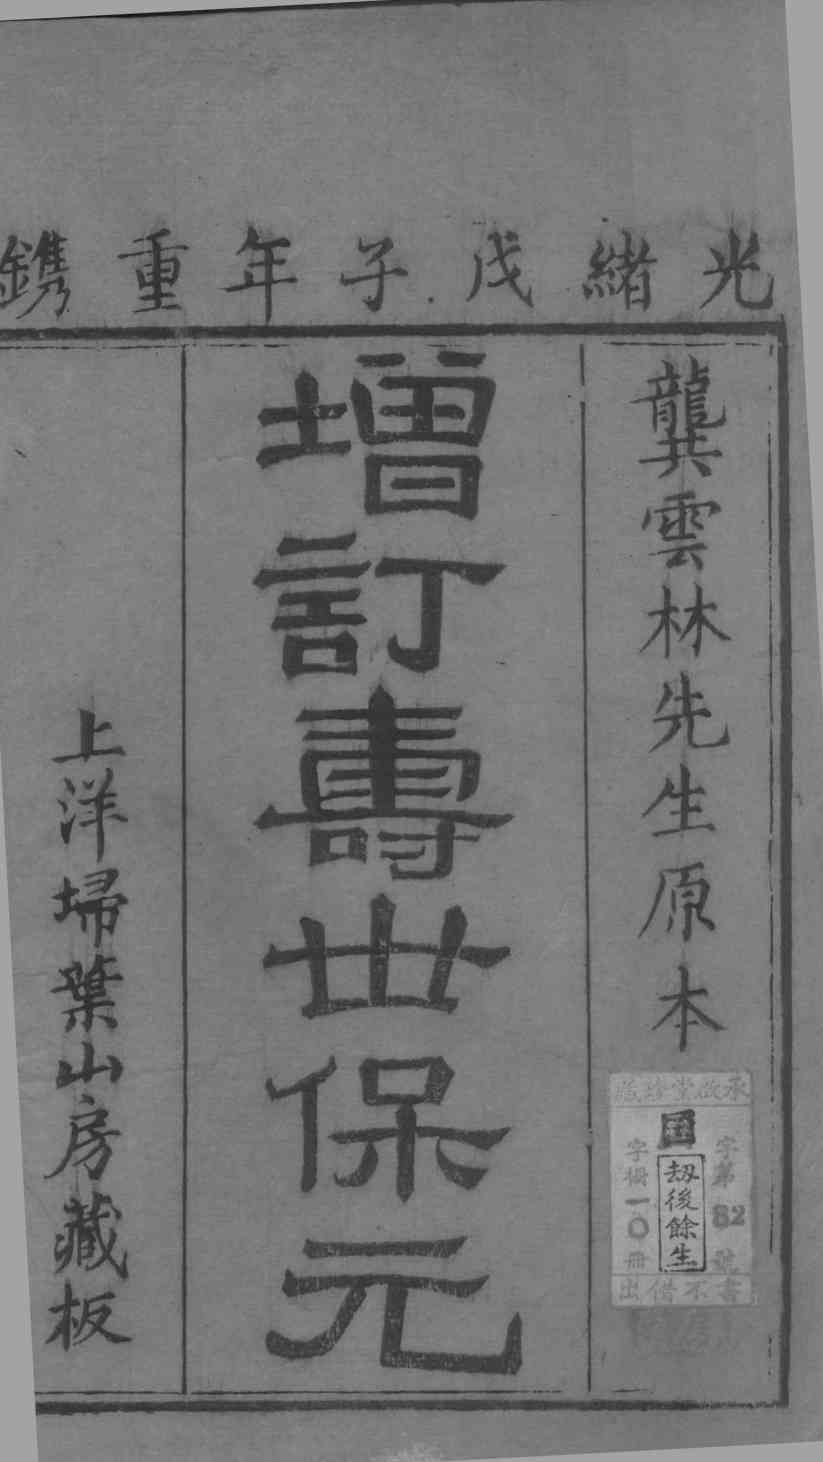 光緒戊子年重鐫
龔雲林先生原本
增訂壽世保元
上洋埽葉山房藏板
承啟堂珍藏
字第82號
国
劫後餘生
字櫥一〇冊
書不借出